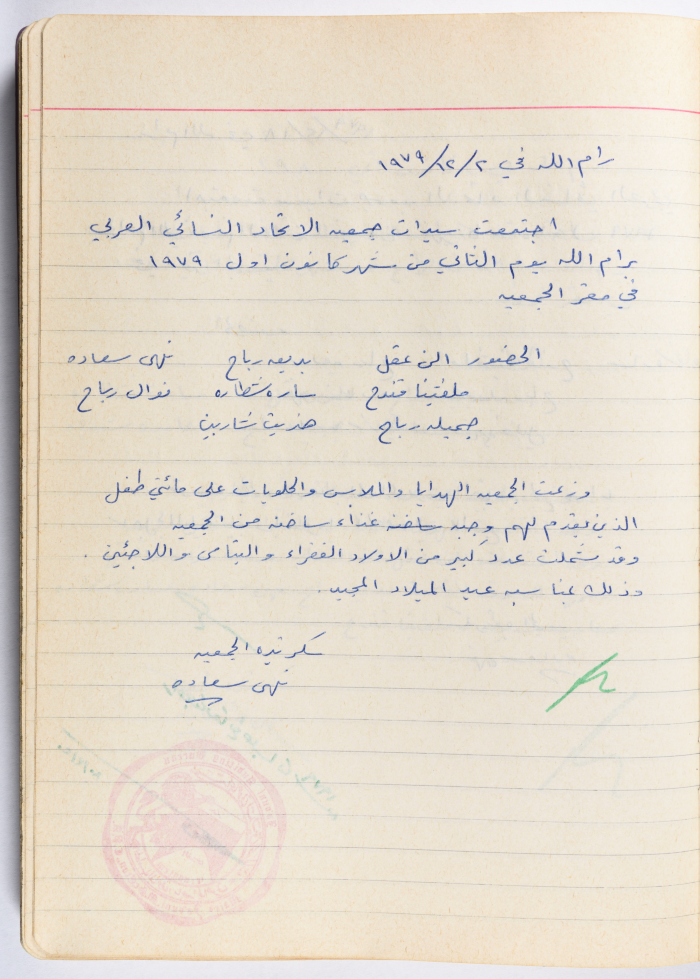 رام الله في ١٩٧٩/١٢/٢
اجتمعت سيدات جمعيه الاتحاد النسائي العربي
برام الله يوم الثاني من شهر كانون اول ١٩٧٩
في مقر الجمعيه
الحضور الن عقل بديعه رباح نهى سعاده
ملفتينا قندح ساره شطاره نوال رباح
جميله رباح هنرييت شاربين
وزعت الجمعيه الهدايا والملابس والحلويات على مائتي طفل
الذين يقدم لهم وجبه ساخنه غذاء ساخنه من الجمعيه
وقد شملت عدد كبير من الاولاد الفقراء واليتامى واللاجئين .
وذلك بمناسبه عيد الميلاد المجيد .
سكرتيره الجمعيه
نهى سعاده